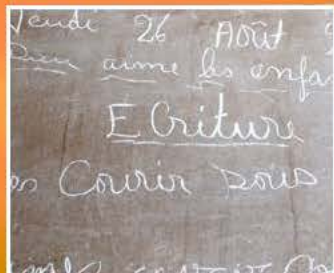 Jeudi 26 Août
Dieu aime les enfa
ECriture
es Courir sous